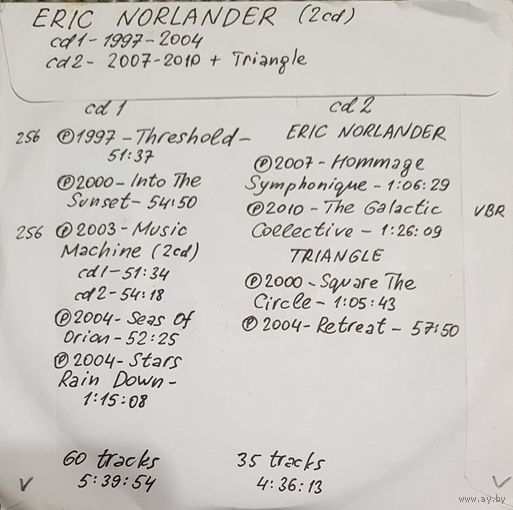 ERIC NORLANDER (2cd)
cd1-1997-2004
cd2- 2007-2010 + Triangle
cd1
256 Ⓟ1997-Threshold-
51:37
Ⓟ2000-Into The
Sunset- 54:50
256 Ⓟ2003-Music
Machine (2cd)
cd1-51:34
cd2-54:18
Ⓟ2004-Seas Of
Orion-52:25
Ⓟ2004-Stars
Rain Down-
1:15:08
60 tracks
V 5:39:54
cd2
ERIC NORLANDER
Ⓟ2007-Hommage
Symphonique-1:06:29
Ⓟ2010-The Galactic
Collective-1:26:09
VBR
TRIANGLE
Ⓟ2000-Square The
Circle-1:05:43
Ⓟ2004-Retreat-57:50
35 tracks
4:36:13
V
www.ay.by